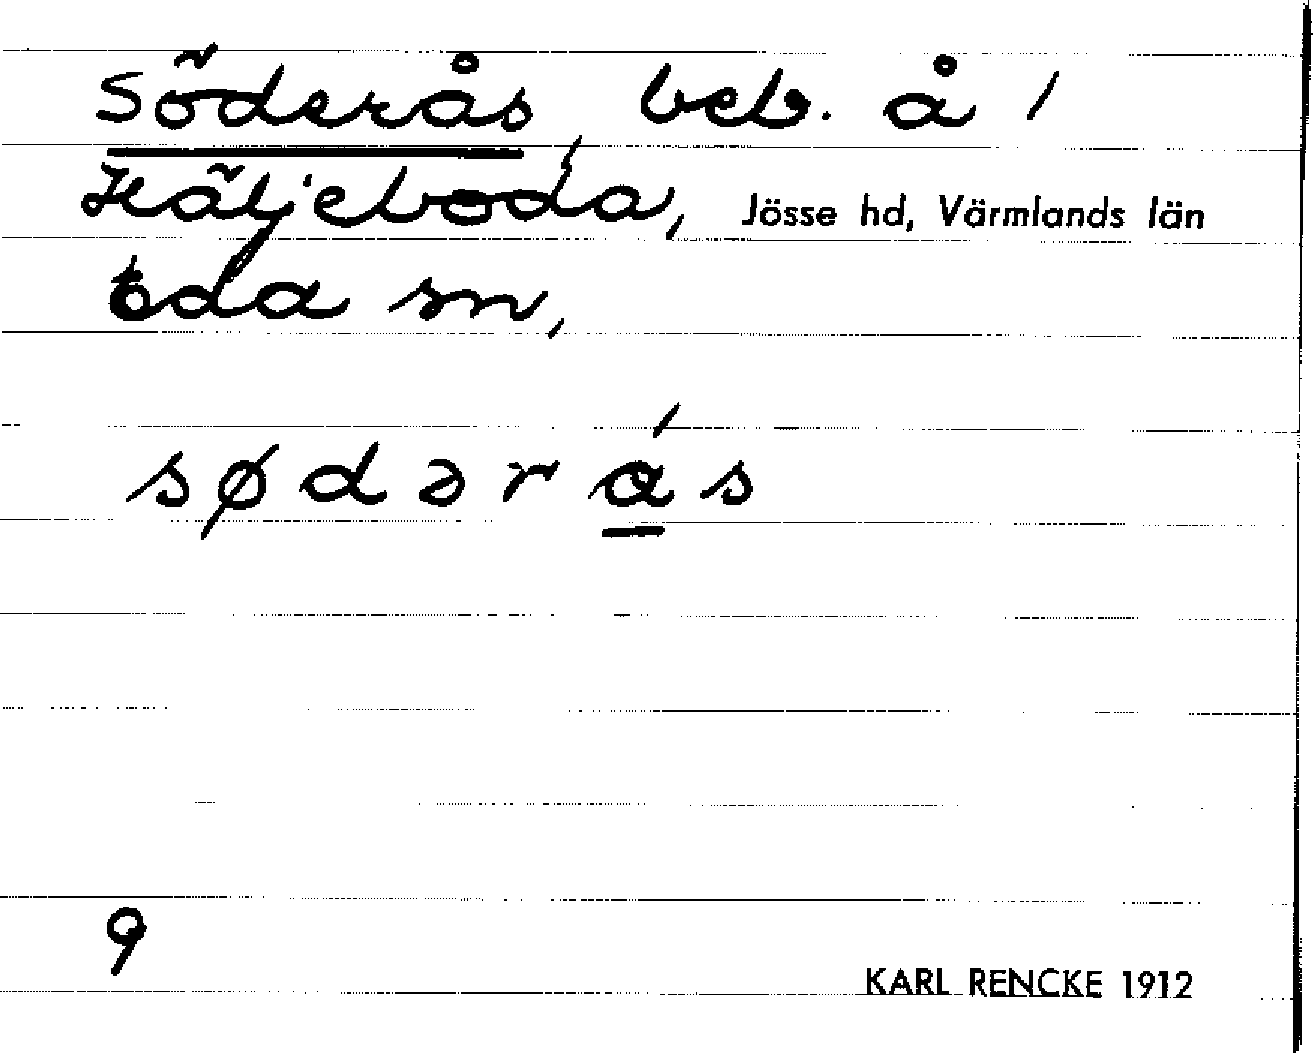 Söderås, beb. å 1
Häljeboda, Jösse hd, Värmlands län
Eda sn,
sødərás
9
KARL RENCKE 1912